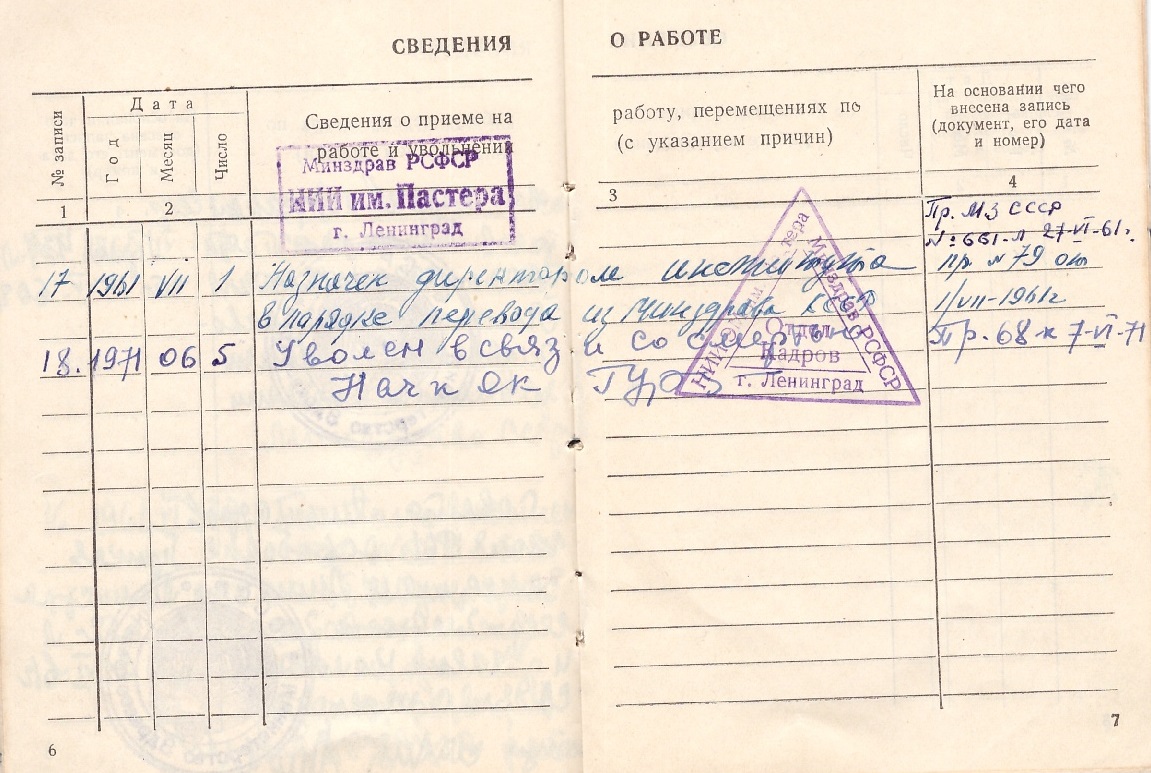 СВЕДЕНИЯ О РАБОТЕ
№ записи
Дата
Год
Месяц
Число
Сведения о приеме на работу, перемещениях по
работе и увольнении (с указанием причин)
На основании чего
внесена запись
(документ, его дата
и номер)
1 2 3 4
Минздрав РСФСР
НИИ им. Пастера
г. Ленинград
Пр. МЗ СССР
№ 661-Л 27-VI-61г.
17 1961 VII 1 Назначен директором института пр № 79 от
в порядке перевода из Минздрава 1/VII-1961г
18. 1971 06 5 Уволен в связи со смертью Пр. 68-к 7-VI-71
Нач к
НИИ
Минздрав РСФСР
Отдел
кадров
г. Ленинград
6
7